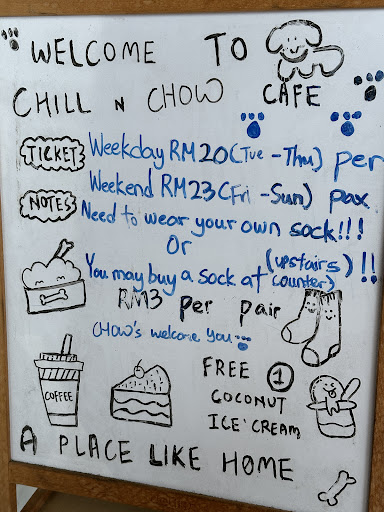 WELCOME TO
CHILL N CHOW CAFE
TICKET Weekday RM20 (Tue - Thu) per
Weekend RM23 (Fri - Sun) pax
NOTES Need to wear your own sock!!!
Or
You may buy a sock at (upstairs) counter) !!
RM3 per pair
CHOW's welcome you
FREE 1
COFFEE
COCONUT
ICE'CREAM
A PLACE LIKE HOME